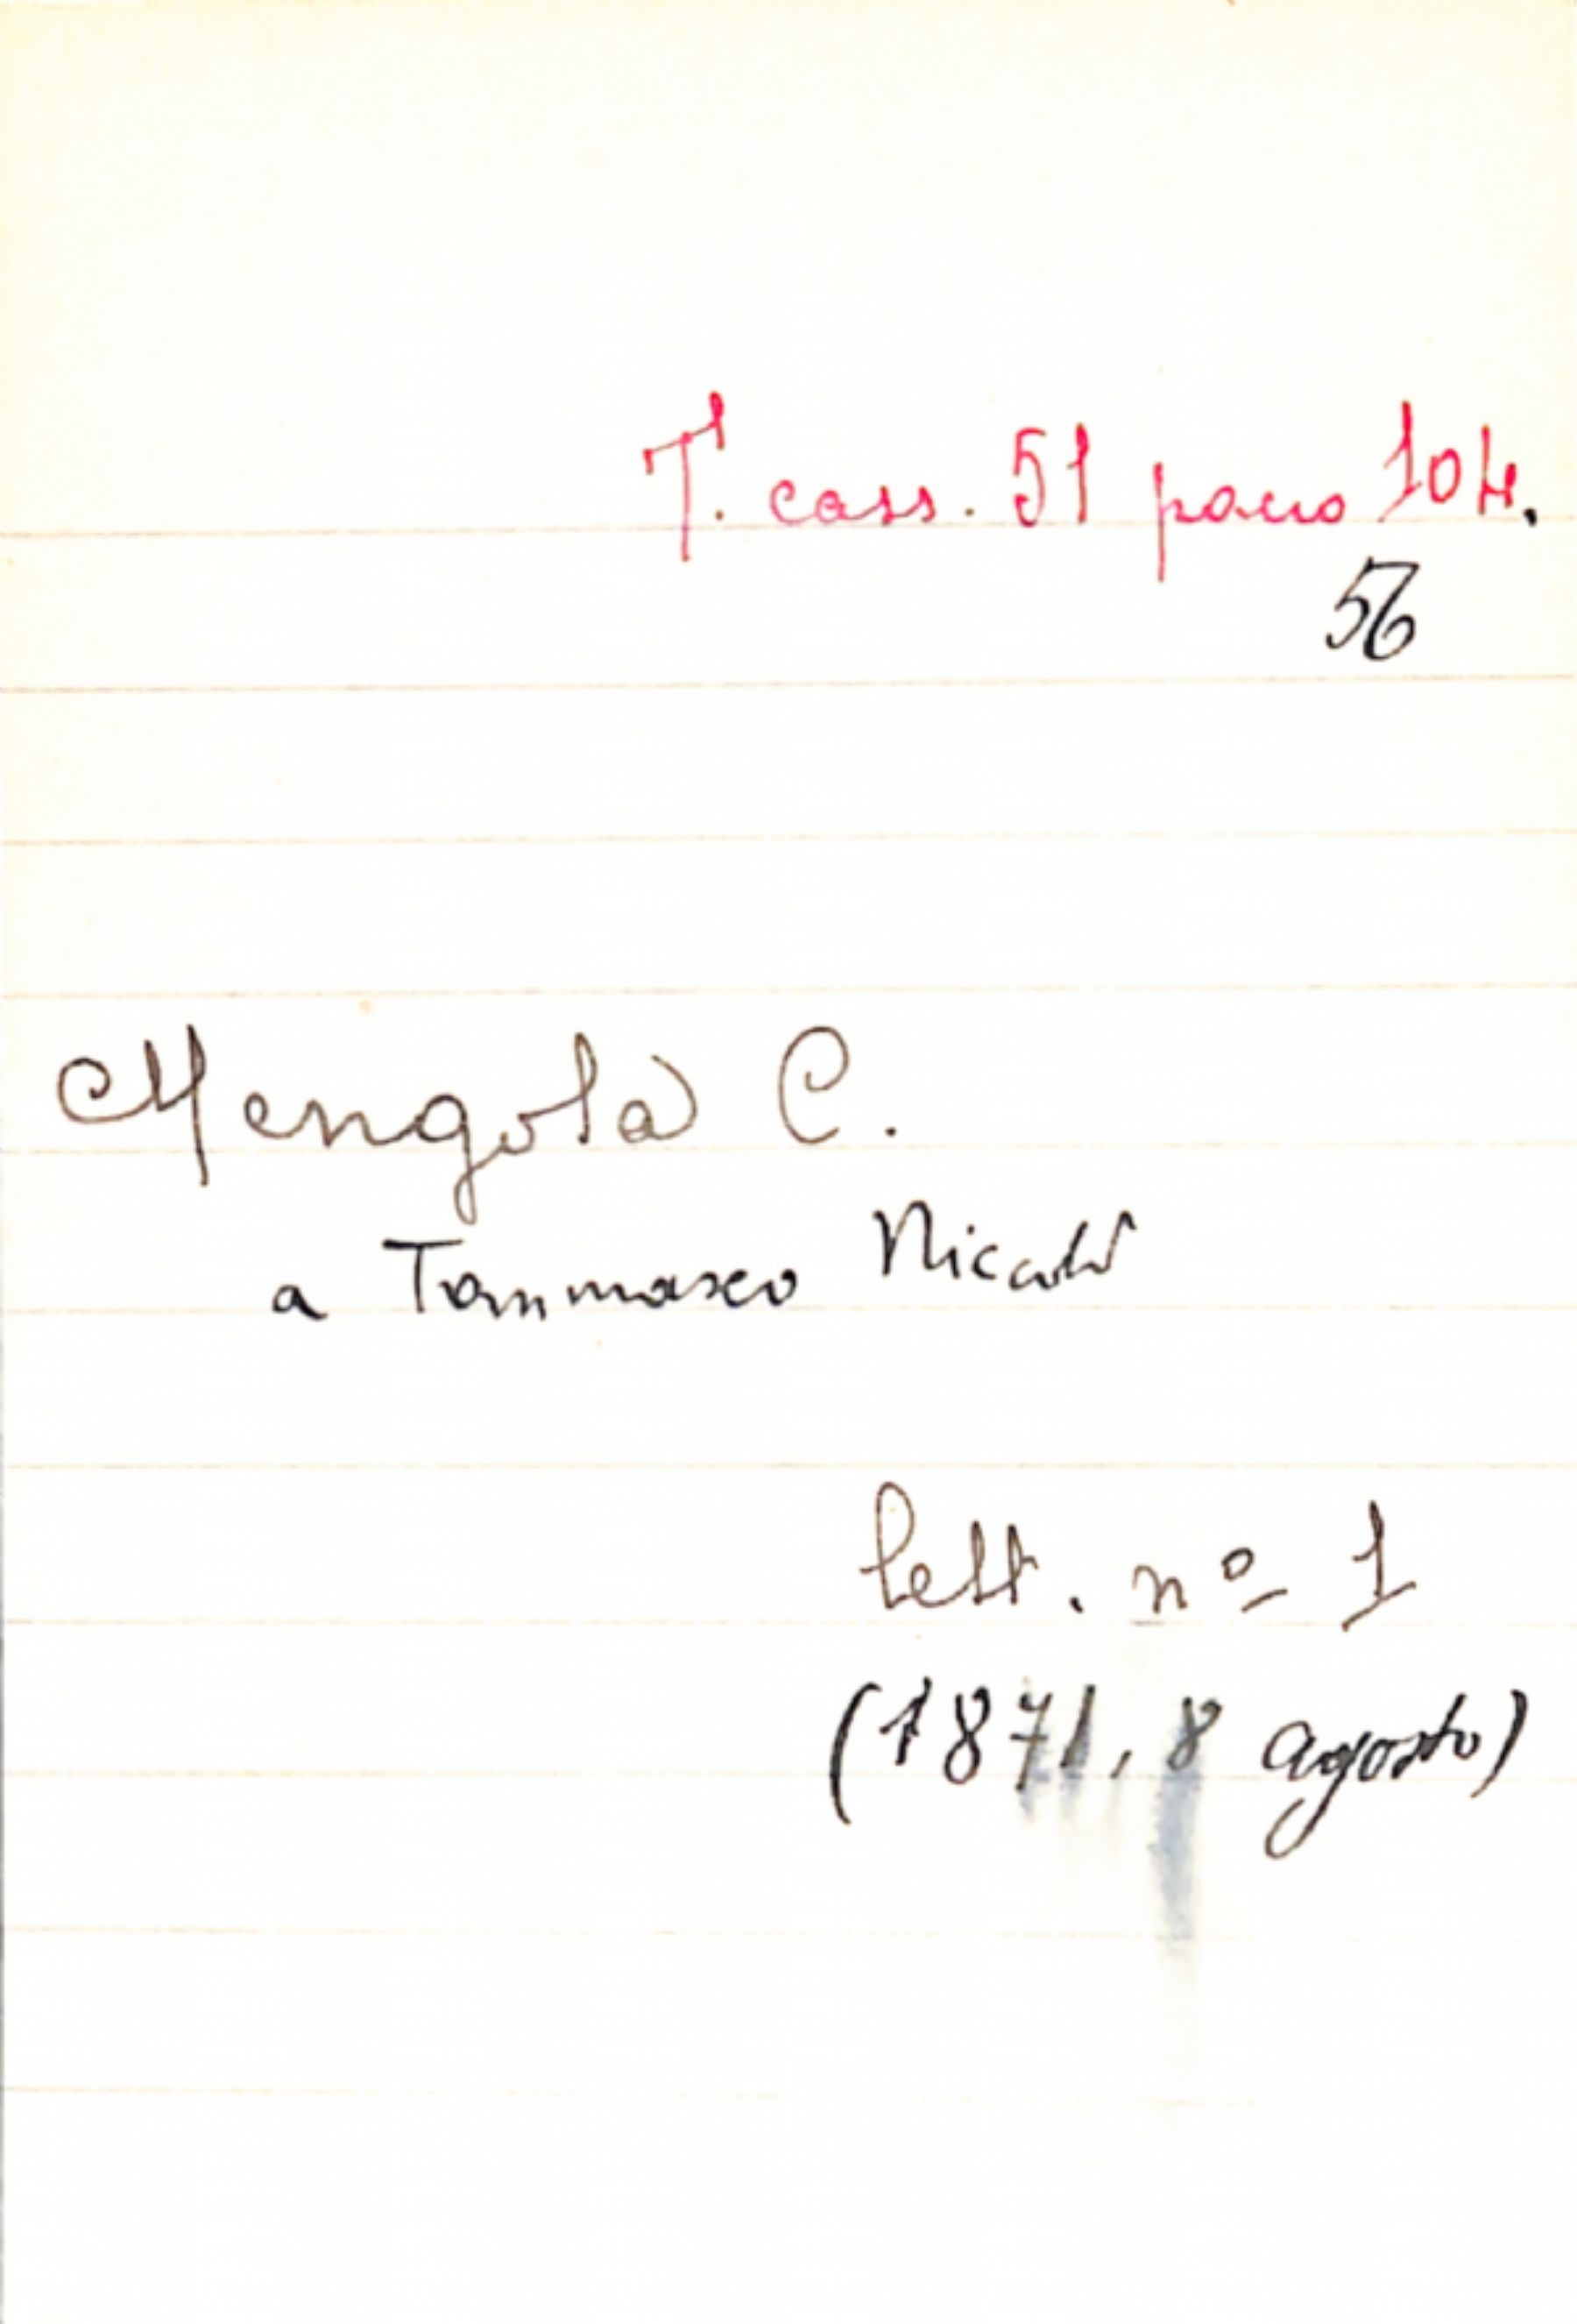 T. cass. 51 pacco 104.
56
Mengola C.
a Tommaseo Nicolò
lett. nº 1
(1871, 8 agosto)